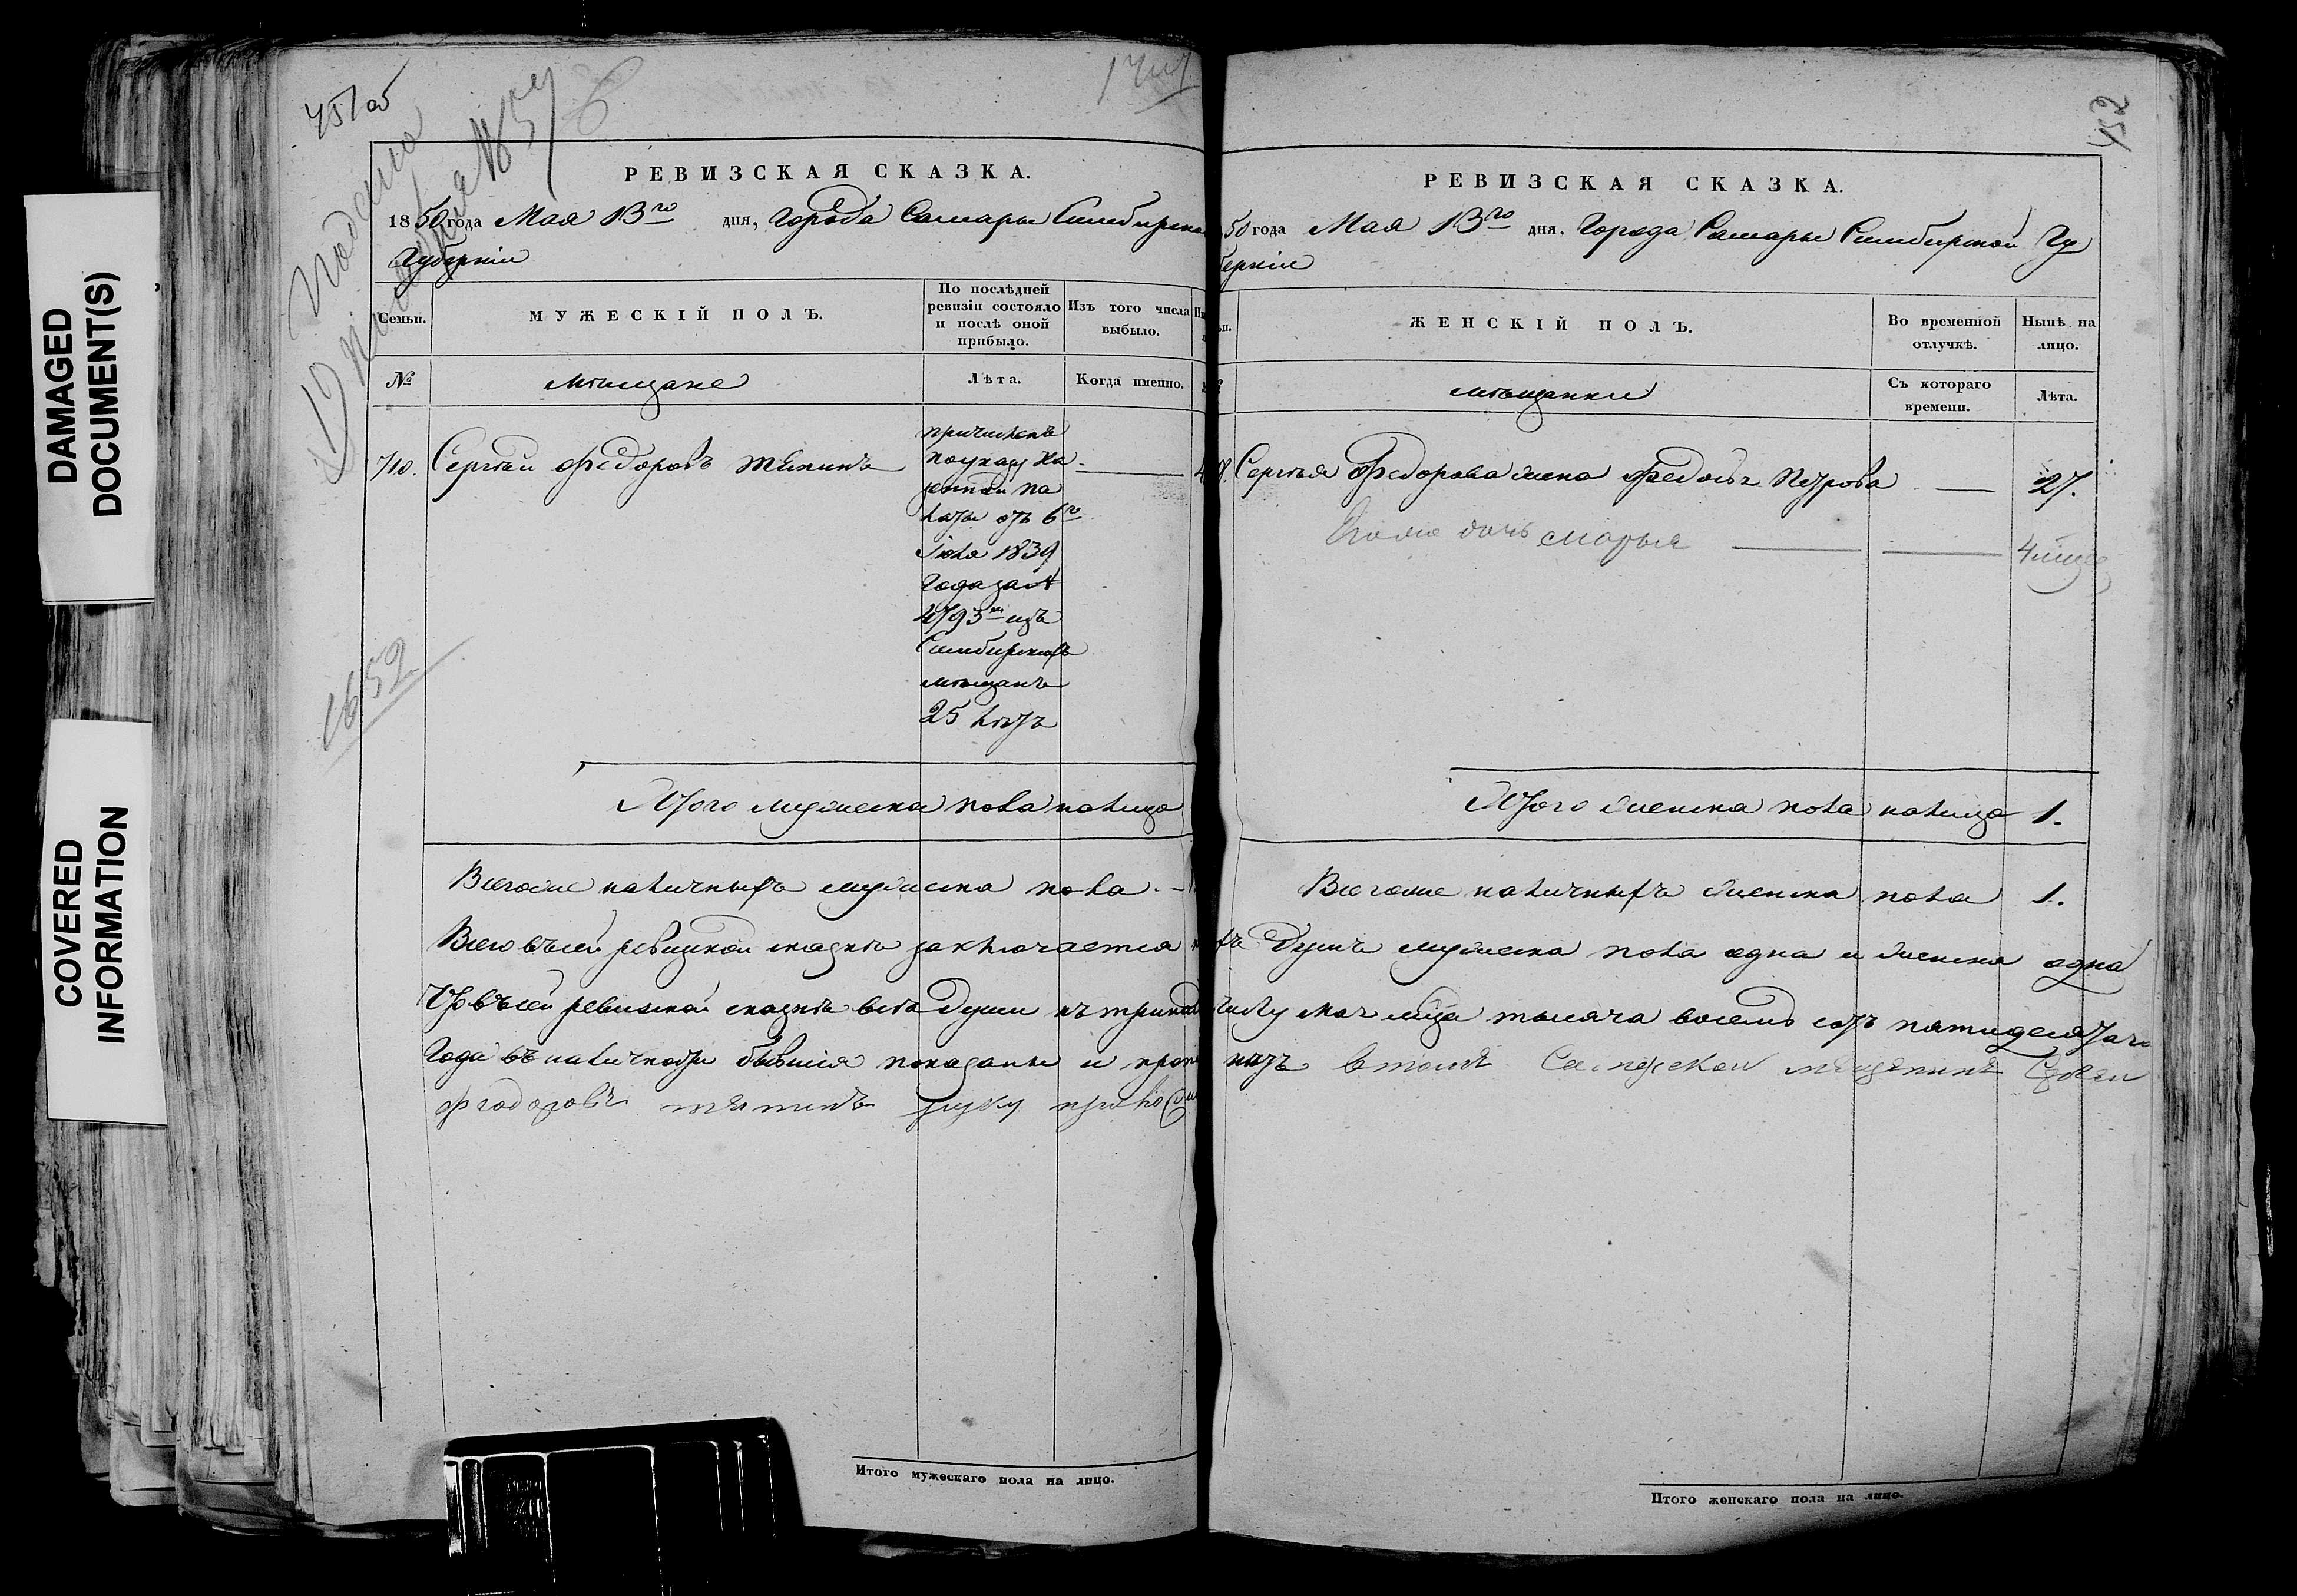 DAMAGED
DOCUMENT(S)
COVERED
INFORMATION
451 об
Подана
РЕВИЗСКАЯ СКАЗКА.
1850 года Мая 13го дня, Города Самары Симбирско
Губерніи
Семьи.
МУЖЕСКІЙ ПОЛЪ.
По послѣдней
ревизіи состояло
и послѣ оной
прибыло.
Изъ того числа
выбыло.
№
мѣщане
Лѣта.
Когда именно.
710. Сергѣй Федоровъ
причисленъ
по указу Ка
зенной па
латы отъ 6го
Іюля 1839
года за №
4793м изъ
Симбирскихъ
мѣщанъ
25 лѣтъ
1652
Итого мужеска пола налицо
Всего же наличныхъ мужеска пола
Всего въ сей ревизской сказкѣ заключается
Что въ сей ревизской сказкѣ всѣ души къ тринад
Года въ наличности бывшія показаны и
Федоровъ руку приложи
Итого мужескаго пола на лицо.
452
РЕВИЗСКАЯ СКАЗКА.
50 года Мая 13го дня, Города Самары Симбирской Гу
берніи
ЖЕНСКІЙ ПОЛЪ.
Во временной
отлучкѣ.
Нынѣ на
лицо.
мѣщанки
Съ котораго
времени.
Лѣта.
Сергѣя Федорова жена Федосья Петрова — 27.
дочь Марья
Итого женска пола налицо 1.
Всего же наличныхъ женска пола 1.
душъ мужеска пола одна и женска одна
числу мая мѣсяца тысяча восемь сотъ пятидесятаго
нѣтъ в томъ мещенинъ
Итого женскаго пола на лицо.